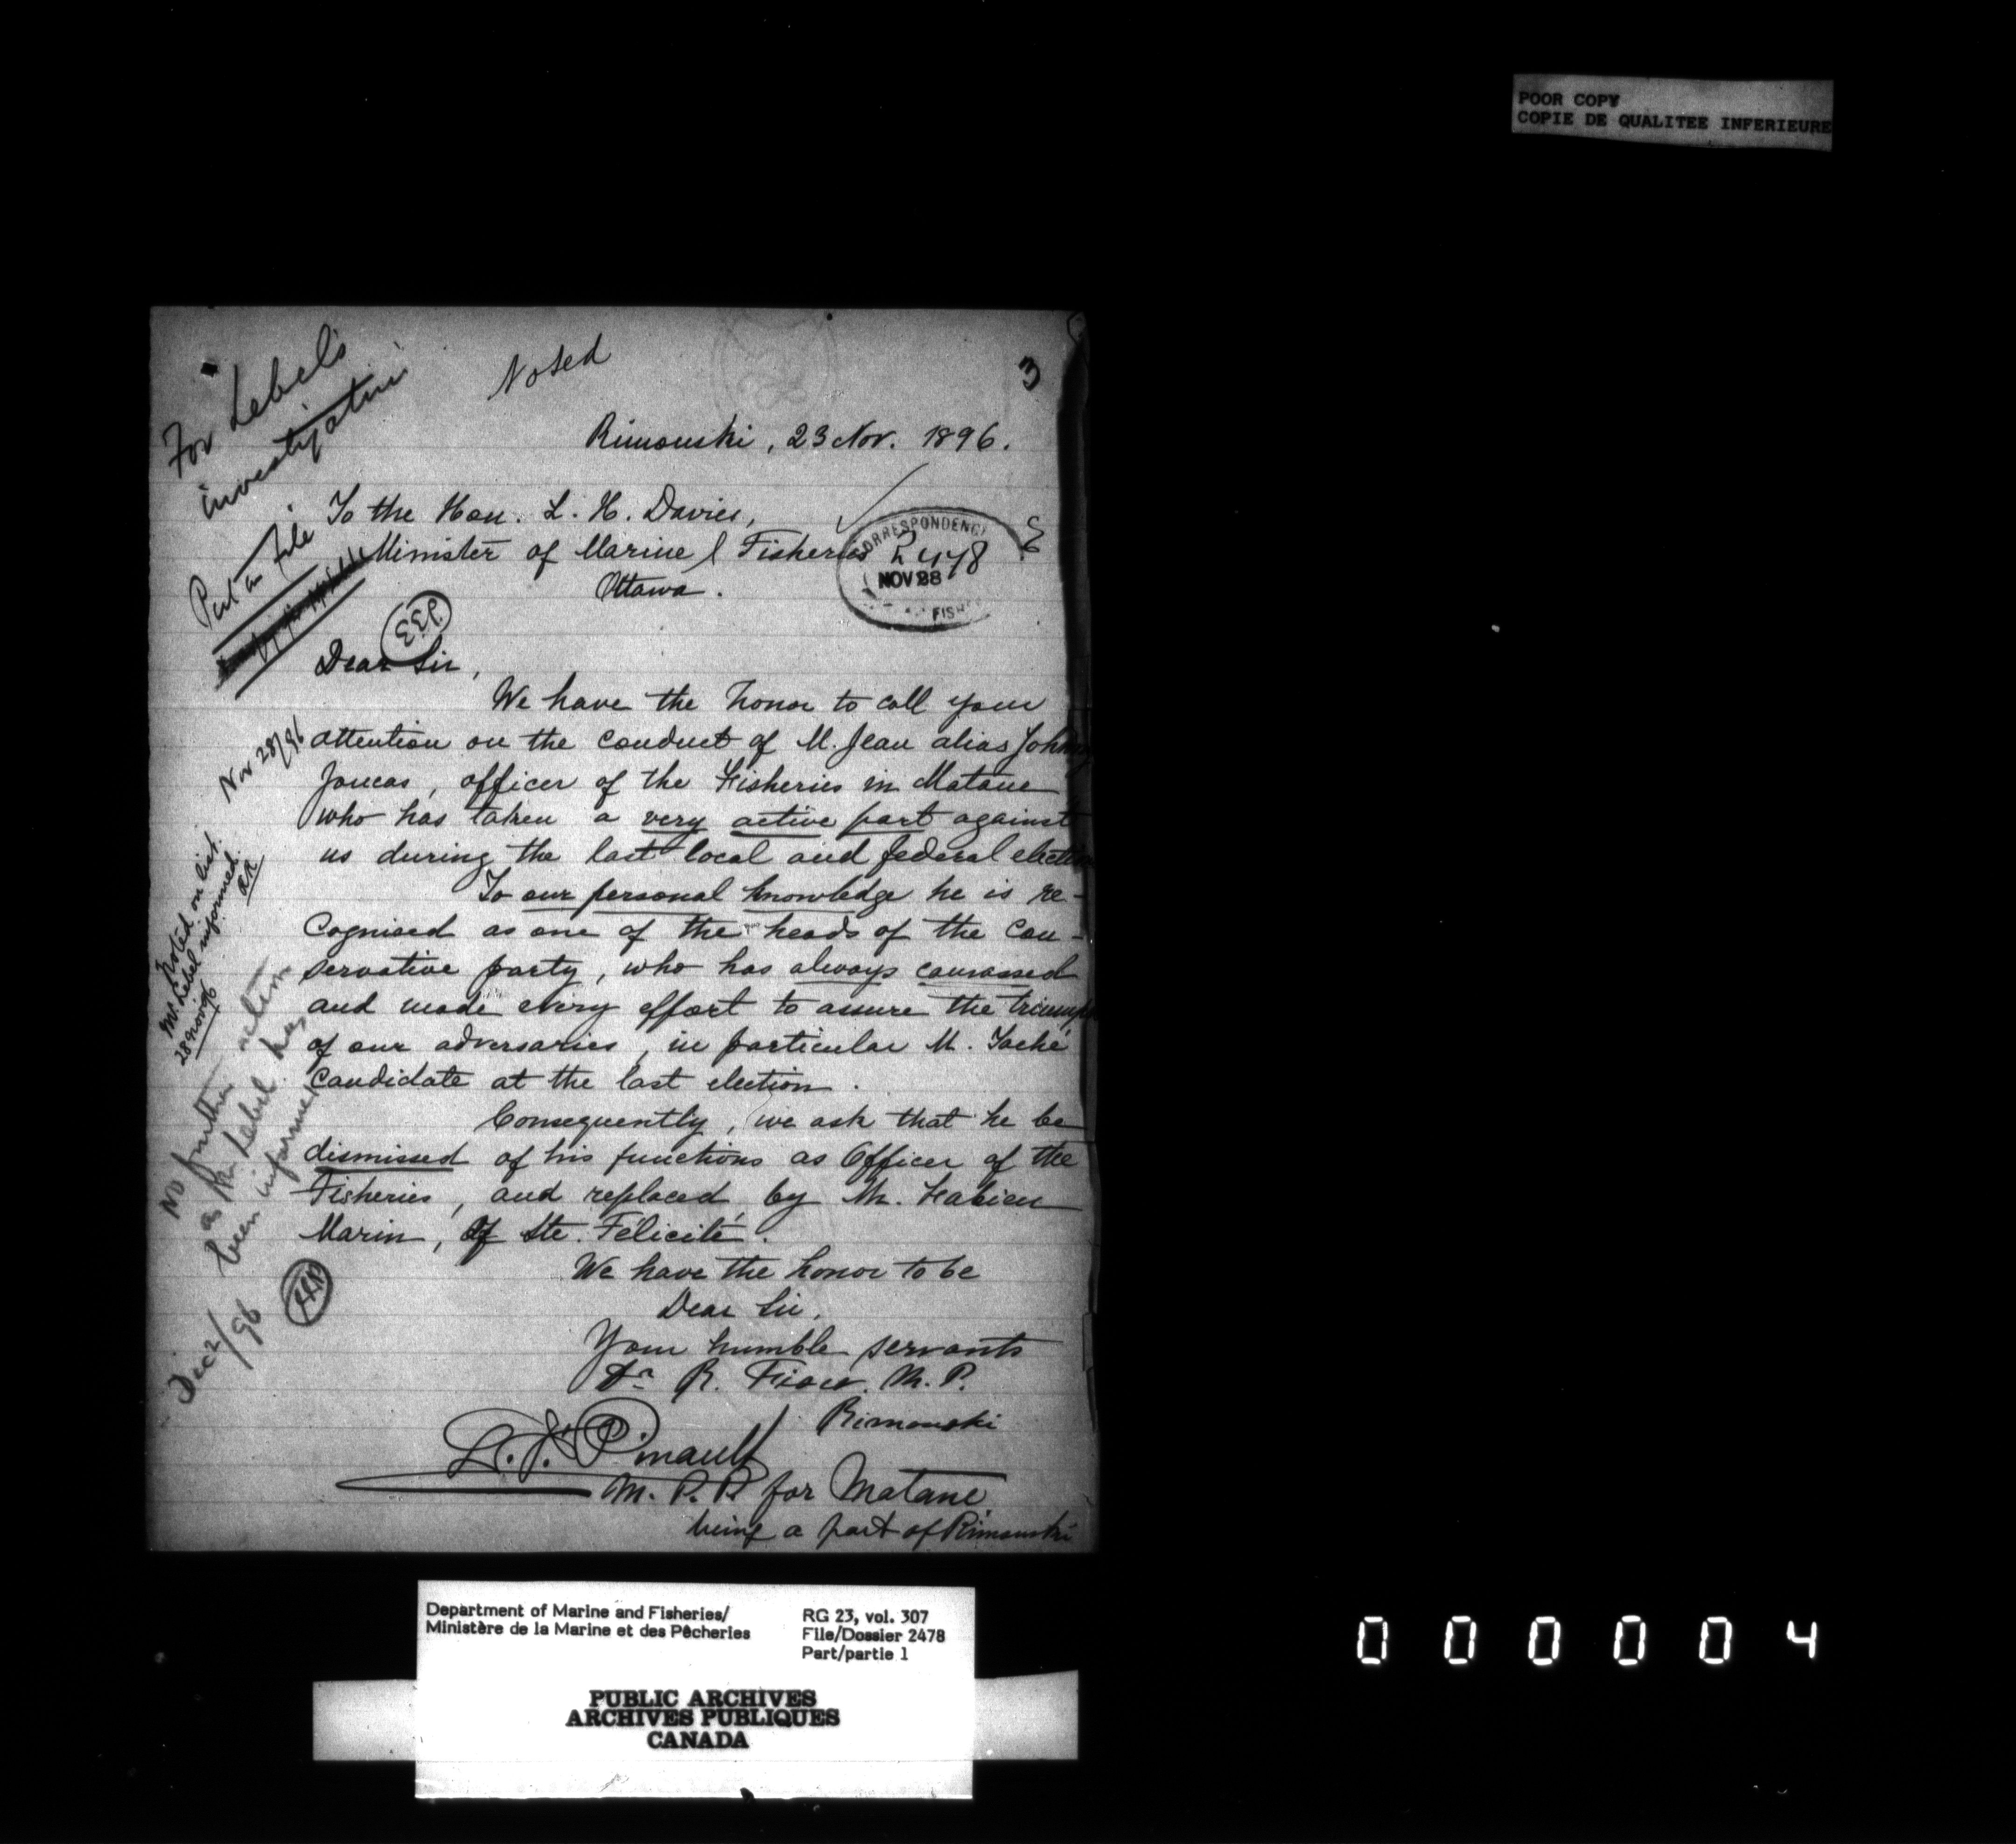 POOR COPY
COPIE DE QUALITEE INFERIEURE
For Lebel's
investigation
Noted
3
Rimouski, 23 Nov. 1896.
To the Hon. L. H. Davies,
Minister of Marine & Fisheries
Ottawa.
CORRESPONDENCE
2478
NOV 28
FISH
Put on file
Dear Sir,
We have the honor to call your
attention on the conduct of M. Jean alias Johnny
Joncas, officer of the Fisheries in Matane
who has taken a very active part against
us during the last local and federal election
To our personal knowledge he is re-
cognised as one of the heads of the Con-
servative party, who has always canvassed
and made every effort to assure the triumph
of our adversaries, in particular M. Taché
candidate at the last election.
Consequently, we ask that he be
dismissed of his functions as Officer of the
Fisheries, and replaced by M. Fabien
Marin, of Ste. Félicité.
We have the honor to be
Dear Sir,
Your humble servants
Dr R. Fiset. M. P.
Rimouski
L. F. Pinault
M. P. P. for Matane
being a part of Rimouski
Nov 28/96
Noted on list.
Mr. Lebel informed.
28 Nov 96
No further action
as Mr Lebel has
been informed
Dec 2/96
Department of Marine and Fisheries/
Ministère de la Marine et des Pêcheries
RG 23, vol. 307
File/Dossier 2478
Part/partie 1
PUBLIC ARCHIVES
ARCHIVES PUBLIQUES
CANADA
000004